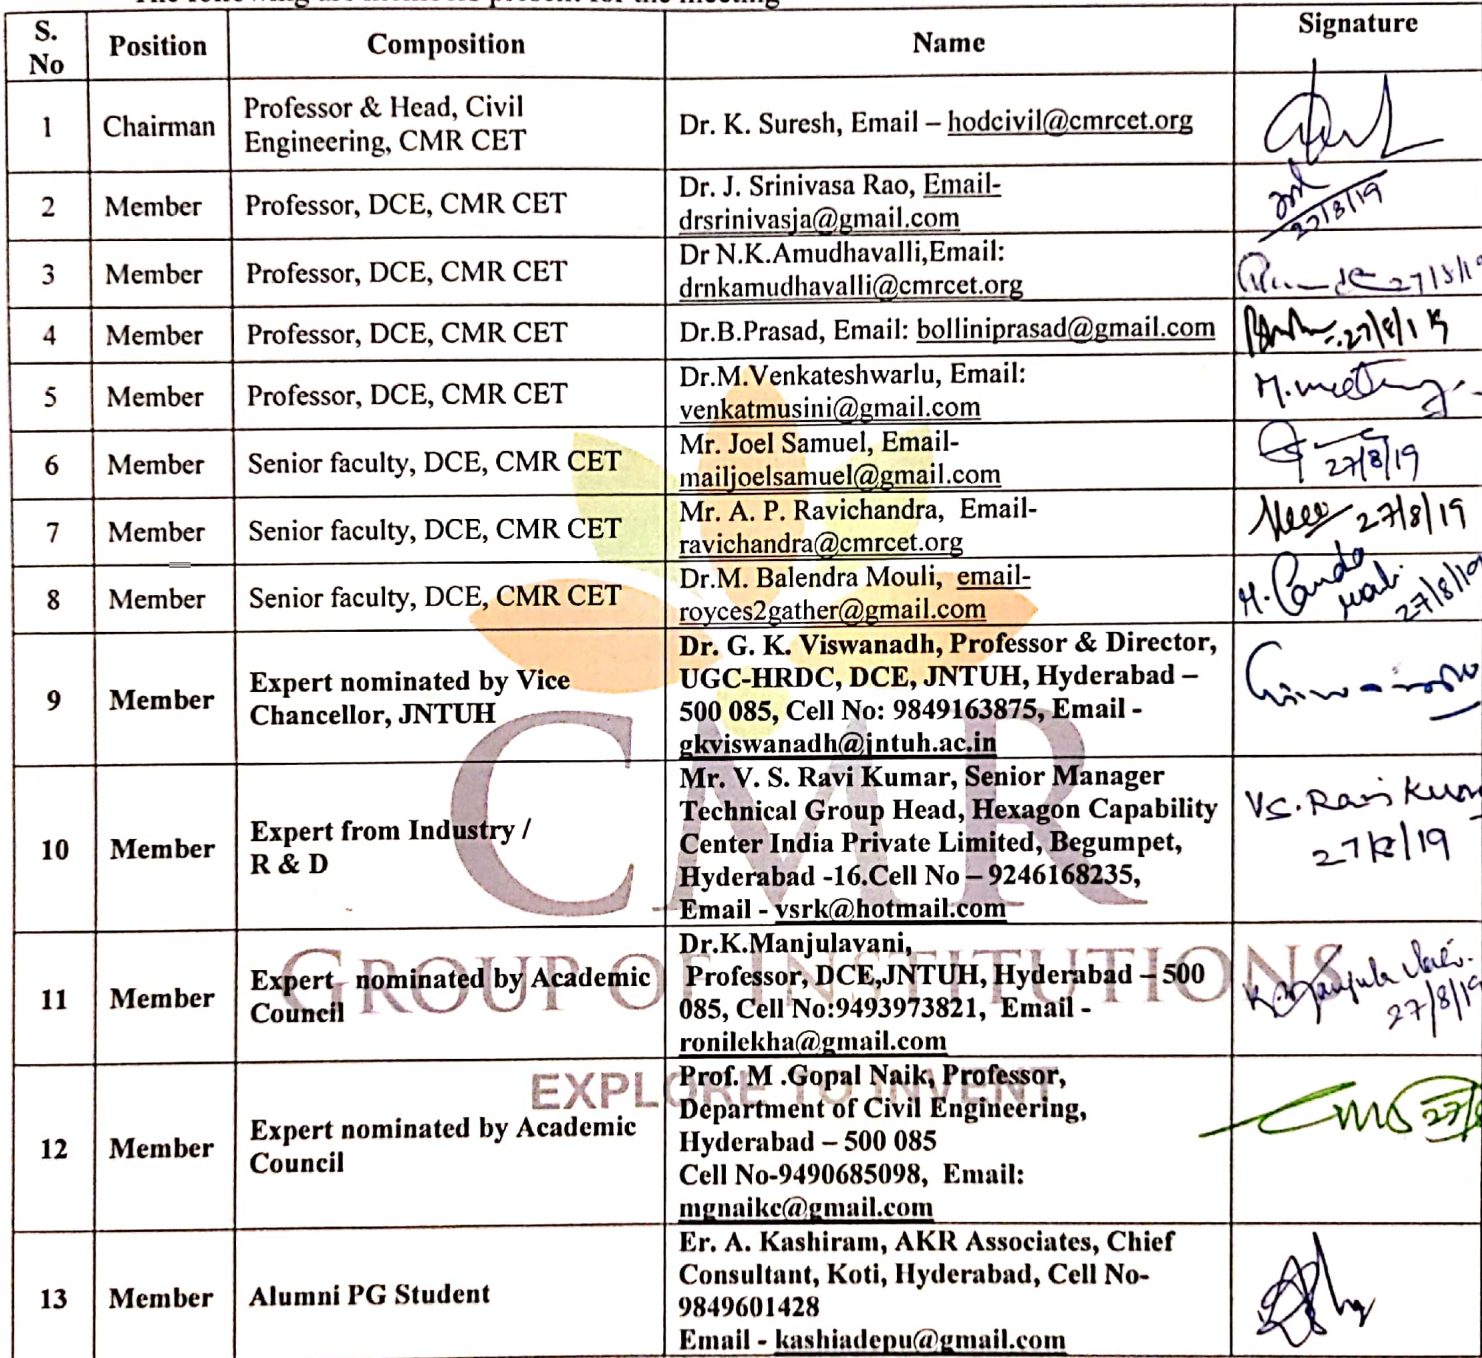 The following are members present for the meeting
S. No Position Composition Name Signature
1 Chairman Professor & Head, Civil
Engineering, CMR CET
Dr. K. Suresh, Email – hodcivil@cmrcet.org
2 Member Professor, DCE, CMR CET
Dr. J. Srinivasa Rao, Email-
drsrinivasja@gmail.com
27/8/19
3 Member Professor, DCE, CMR CET
Dr N.K.Amudhavalli,Email:
drnkamudhavalli@cmrcet.org
27/8/19
4 Member Professor, DCE, CMR CET
Dr.B.Prasad, Email: bolliniprasad@gmail.com
27/8/19
5 Member Professor, DCE, CMR CET
Dr.M.Venkateshwarlu, Email:
venkatmusini@gmail.com
6 Member Senior faculty, DCE, CMR CET
Mr. Joel Samuel, Email-
mailjoelsamuel@gmail.com
27/8/19
7 Member Senior faculty, DCE, CMR CET
Mr. A. P. Ravichandra, Email-
ravichandra@cmrcet.org
27/8/19
8 Member Senior faculty, DCE, CMR CET
Dr.M. Balendra Mouli, email-
royces2gather@gmail.com
27/8/19
9 Member Expert nominated by Vice
Chancellor, JNTUH
Dr. G. K. Viswanadh, Professor & Director,
UGC-HRDC, DCE, JNTUH, Hyderabad –
500 085, Cell No: 9849163875, Email -
gkviswanadh@jntuh.ac.in
10 Member Expert from Industry /
R & D
Mr. V. S. Ravi Kumar, Senior Manager
Technical Group Head, Hexagon Capability
Center India Private Limited, Begumpet,
Hyderabad -16.Cell No – 9246168235,
Email - vsrk@hotmail.com
V.S. Ravi Kumar
27/8/19
11 Member Expert nominated by Academic
Council
Dr.K.Manjulavani,
Professor, DCE,JNTUH, Hyderabad – 500
085, Cell No:9493973821, Email -
ronilekha@gmail.com
K. Manjula Vani.
27/8/19
12 Member Expert nominated by Academic
Council
Prof. M .Gopal Naik, Professor,
Department of Civil Engineering,
Hyderabad – 500 085
Cell No-9490685098, Email:
mgnaikc@gmail.com
27/8
13 Member Alumni PG Student
Er. A. Kashiram, AKR Associates, Chief
Consultant, Koti, Hyderabad, Cell No-
9849601428
Email - kashiadepu@gmail.com
CMR
GROUP OF INSTITUTIONS
EXPLORE TO INVENT